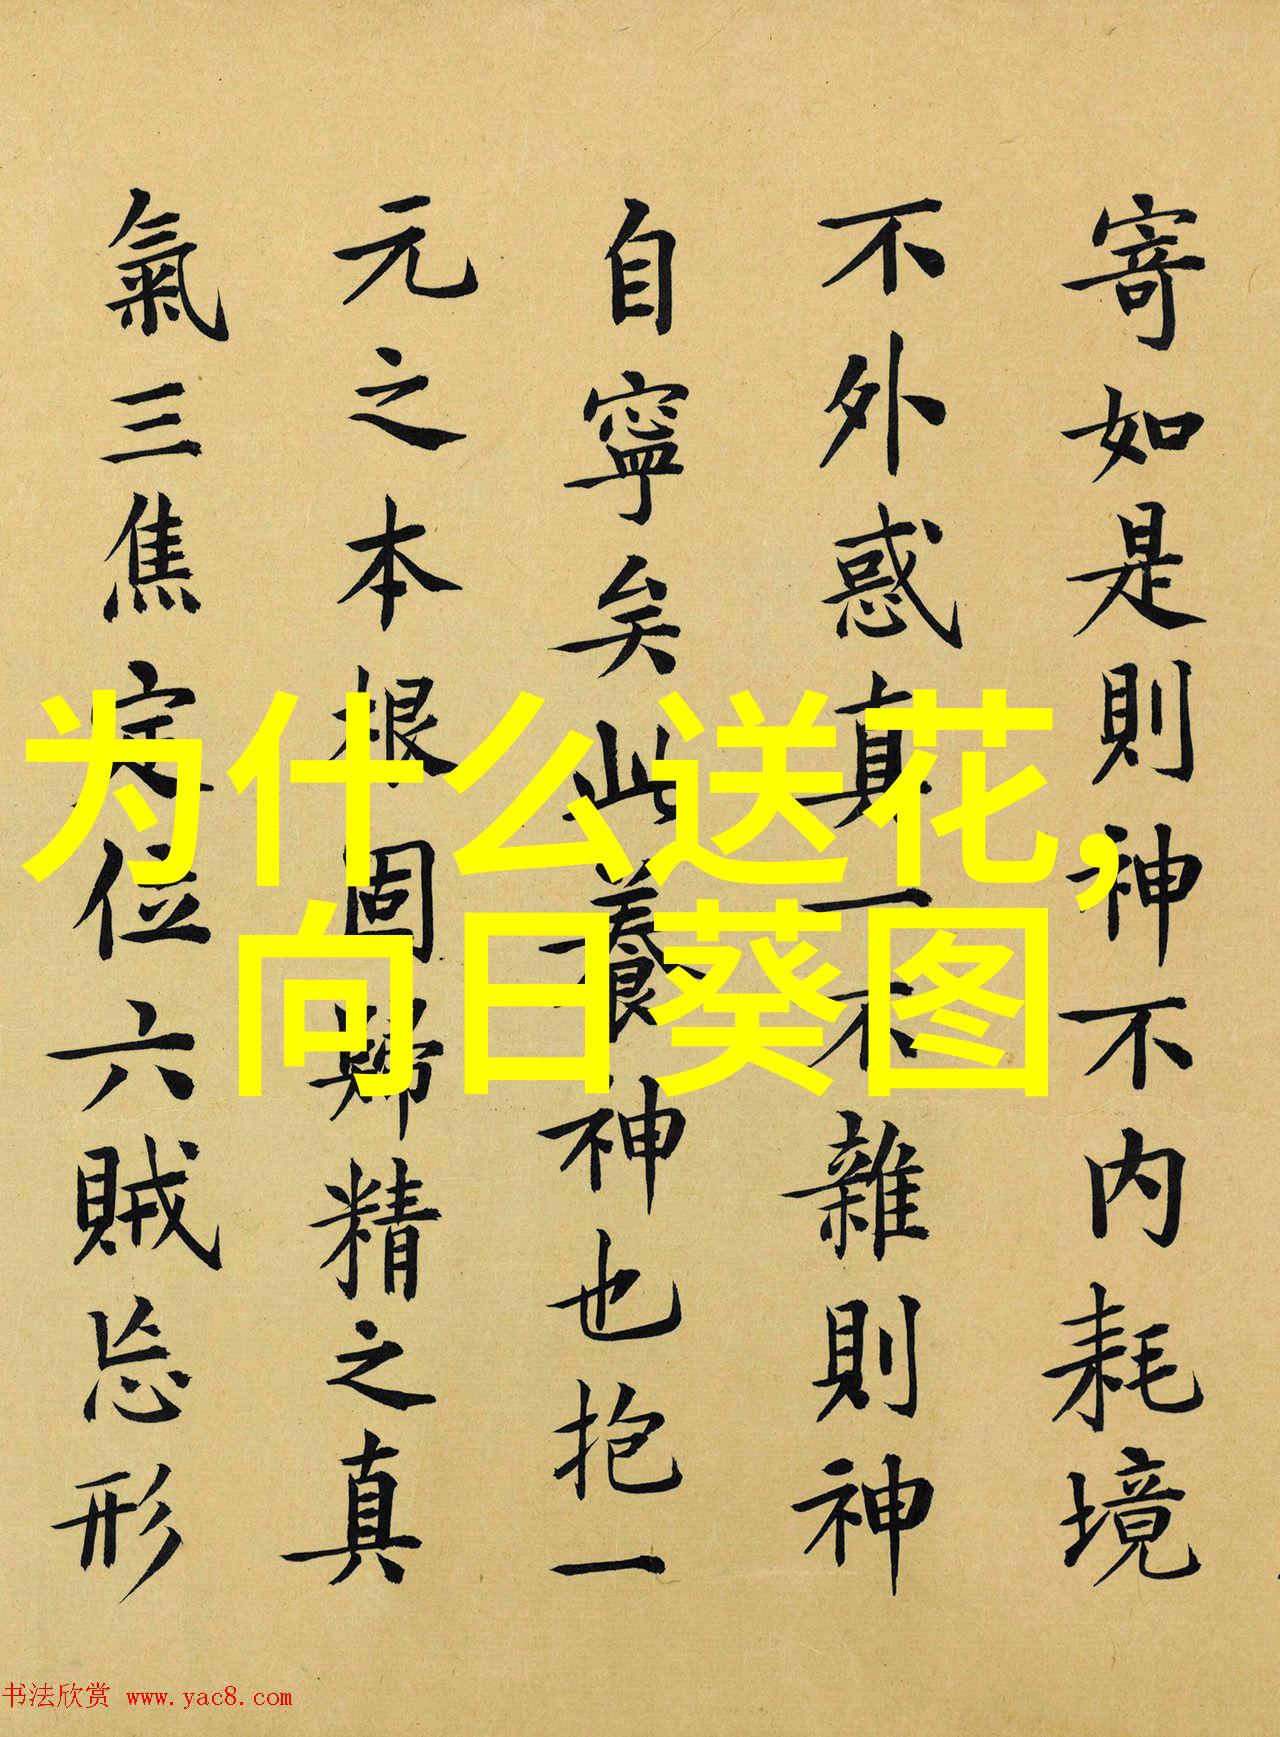 寄如是則神不内耗境
不外惑真一不雜則神
自寧矣此養神也抱一
元之本根固歸精之真
氣三焦定位六賊忘形
为什么送花，
向日葵图
书法欣赏 www.yac8.com